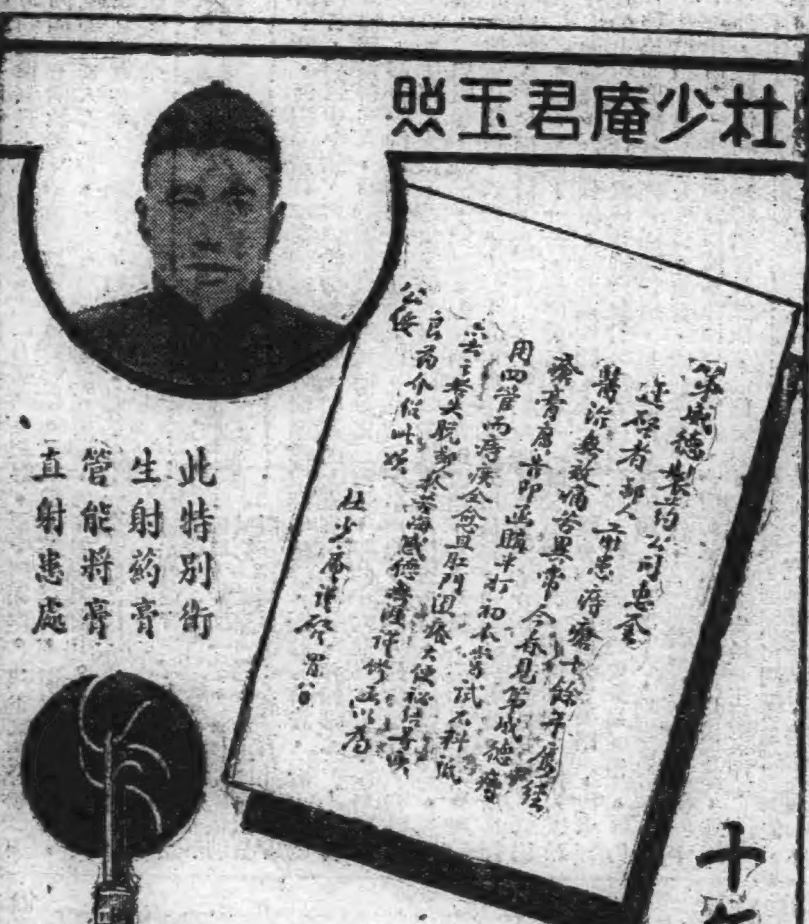 杜少庵君玉照
第威德製药公司惠鉴
迳啓者鄙人患痔瘡十餘年屢經
醫治無效痛苦異常今春見第威德痔
瘡膏廣告即函購半打初不嘗試不料祇
用四管而痔疾全愈且肛門迴癢大便秘結等
脫鄙於苦海感德無涯謹修函以為
良葯介紹此頌
公綏
杜少庵謹啓
此特別衛
生射葯膏
管能將膏
直射患處
十